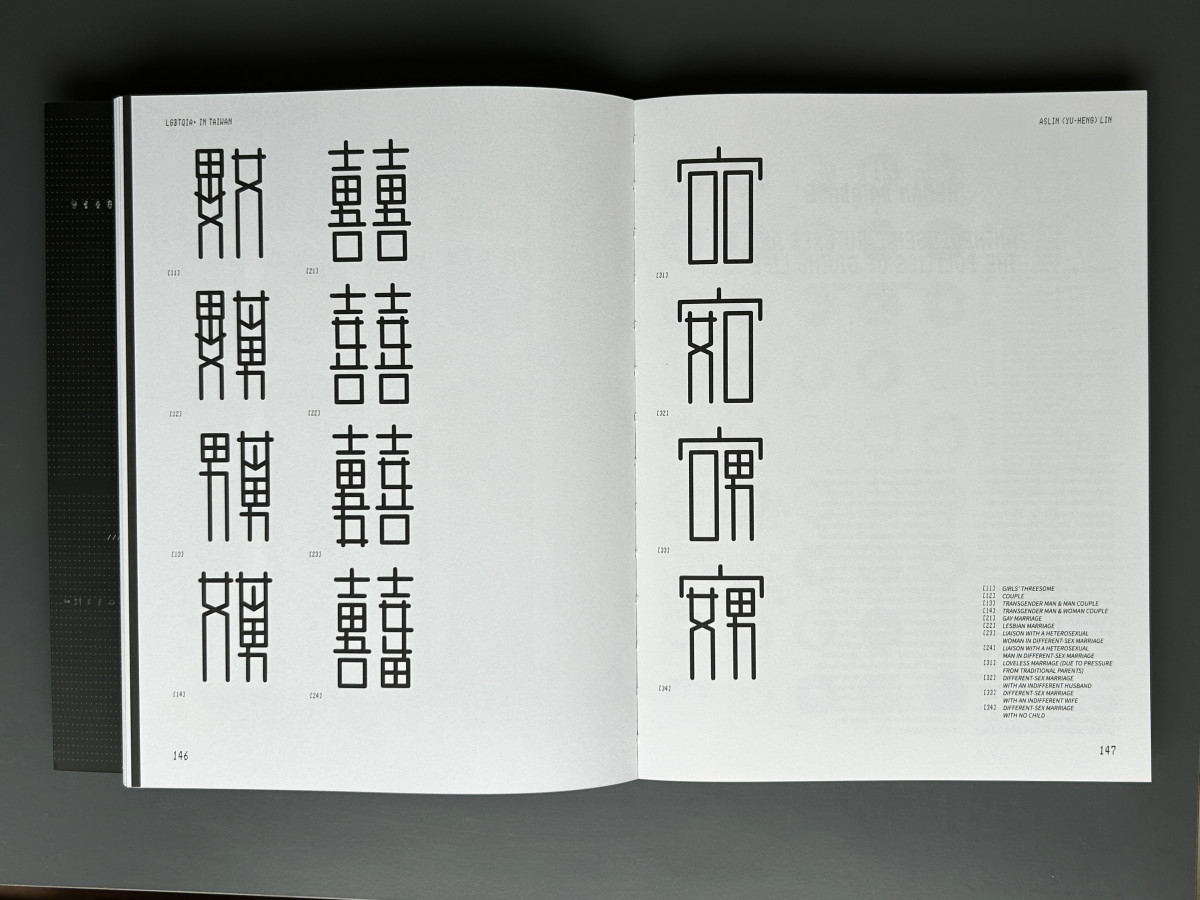 LGBTQIA+ IN TAIWAN
[11]
[21]
[12]
[22]
[13]
[23]
[14]
[24]
146
ASLIN (YU-HENG) LIN
[31]
[32]
[33]
[34]
[11] GIRLS' THREESOME
[12] COUPLE
[13] TRANSGENDER MAN & MAN COUPLE
[14] TRANSGENDER MAN & WOMAN COUPLE
[21] GAY MARRIAGE
[22] LESBIAN MARRIAGE
[23] LIAISON WITH A HETEROSEXUAL
WOMAN IN DIFFERENT-SEX MARRIAGE
[24] LIAISON WITH A HETEROSEXUAL
MAN IN DIFFERENT-SEX MARRIAGE
[31] LOVELESS MARRIAGE (DUE TO PRESSURE
FROM TRADITIONAL PARENTS)
[32] DIFFERENT-SEX MARRIAGE
WITH AN INDIFFERENT HUSBAND
[33] DIFFERENT-SEX MARRIAGE
WITH AN INDIFFERENT WIFE
[34] DIFFERENT-SEX MARRIAGE
WITH NO CHILD
147